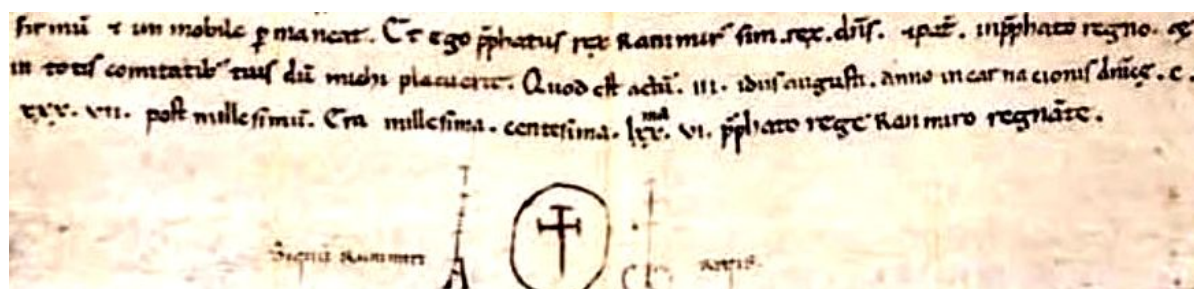 firmū ⁊ un mobile ꝑ maneat. Et ego p̄phatus rex Ranimir᾽ sim. rex. dn̄s. ⁊ pat̄. in p̄phato regno. et
in totis comitatib᾽ tuis dū michi placuerit. Quod est actū. iii. idus augusti. anno incarnacionis dn̄icę. c.
xxx. vii. post millesimū. Era millesima. centesima. lxx.ma vi. p̄phato rege Ranimiro regnāte.
Signū Ranimiri regis.